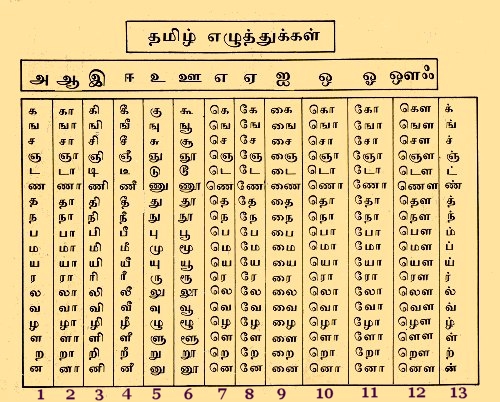 தமிழ் எழுத்துக்கள்
அ ஆ இ ஈ உ ஊ எ ஏ ஐ ஒ ஓ ஔ ஃ
க கா கி கீ கு கூ கெ கே கை கொ கோ கௌ க்
ங ஙா ஙி ஙீ ஙு ஙூ ஙெ ஙே ஙை ஙொ ஙோ ஙௌ ங்
ச சா சி சீ சு சூ செ சே சை சொ சோ சௌ ச்
ஞ ஞா ஞி ஞீ ஞு ஞூ ஞெ ஞே ஞை ஞொ ஞோ ஞௌ ஞ்
ட டா டி டீ டு டூ டெ டே டை டொ டோ டௌ ட்
ண ணா ணி ணீ ணு ணூ ணெ ணே ணை ணொ ணோ ணௌ ண்
த தா தி தீ து தூ தெ தே தை தொ தோ தௌ த்
ந நா நி நீ நு நூ நெ நே நை நொ நோ நௌ ந்
ப பா பி பீ பு பூ பெ பே பை பொ போ பௌ ம்
ம மா மி மீ மு மூ மெ மே மை மொ மோ மௌ ப்
ய யா யி யீ யு யூ யெ யே யை யொ யோ யௌ ய்
ர ரா ரி ரீ ரு ரூ ரெ ரே ரை ரொ ரோ ரௌ ர்
ல லா லி லீ லு லூ லெ லே லை லொ லோ லௌ
வ வா வி வீ வு வூ வெ வே வை வொ வோ வௌ
ழ ழா ழி ழீ ழு ழூ ழெ ழே ழை ழொ ழோ ழௌ ழ்
ள ளா ளி ளீ ளு ளூ ளெ ளே ளை ளொ ளோ ளௌ ள்
ற றா றி றீ று றூ றெ றே றை றொ றோ றௌ ற்
ன னா னி னீ னு னூ னெ னே னை னொ னோ னௌ ன்
1 2 3 4 5 6 7 8 9 10 11 12 13